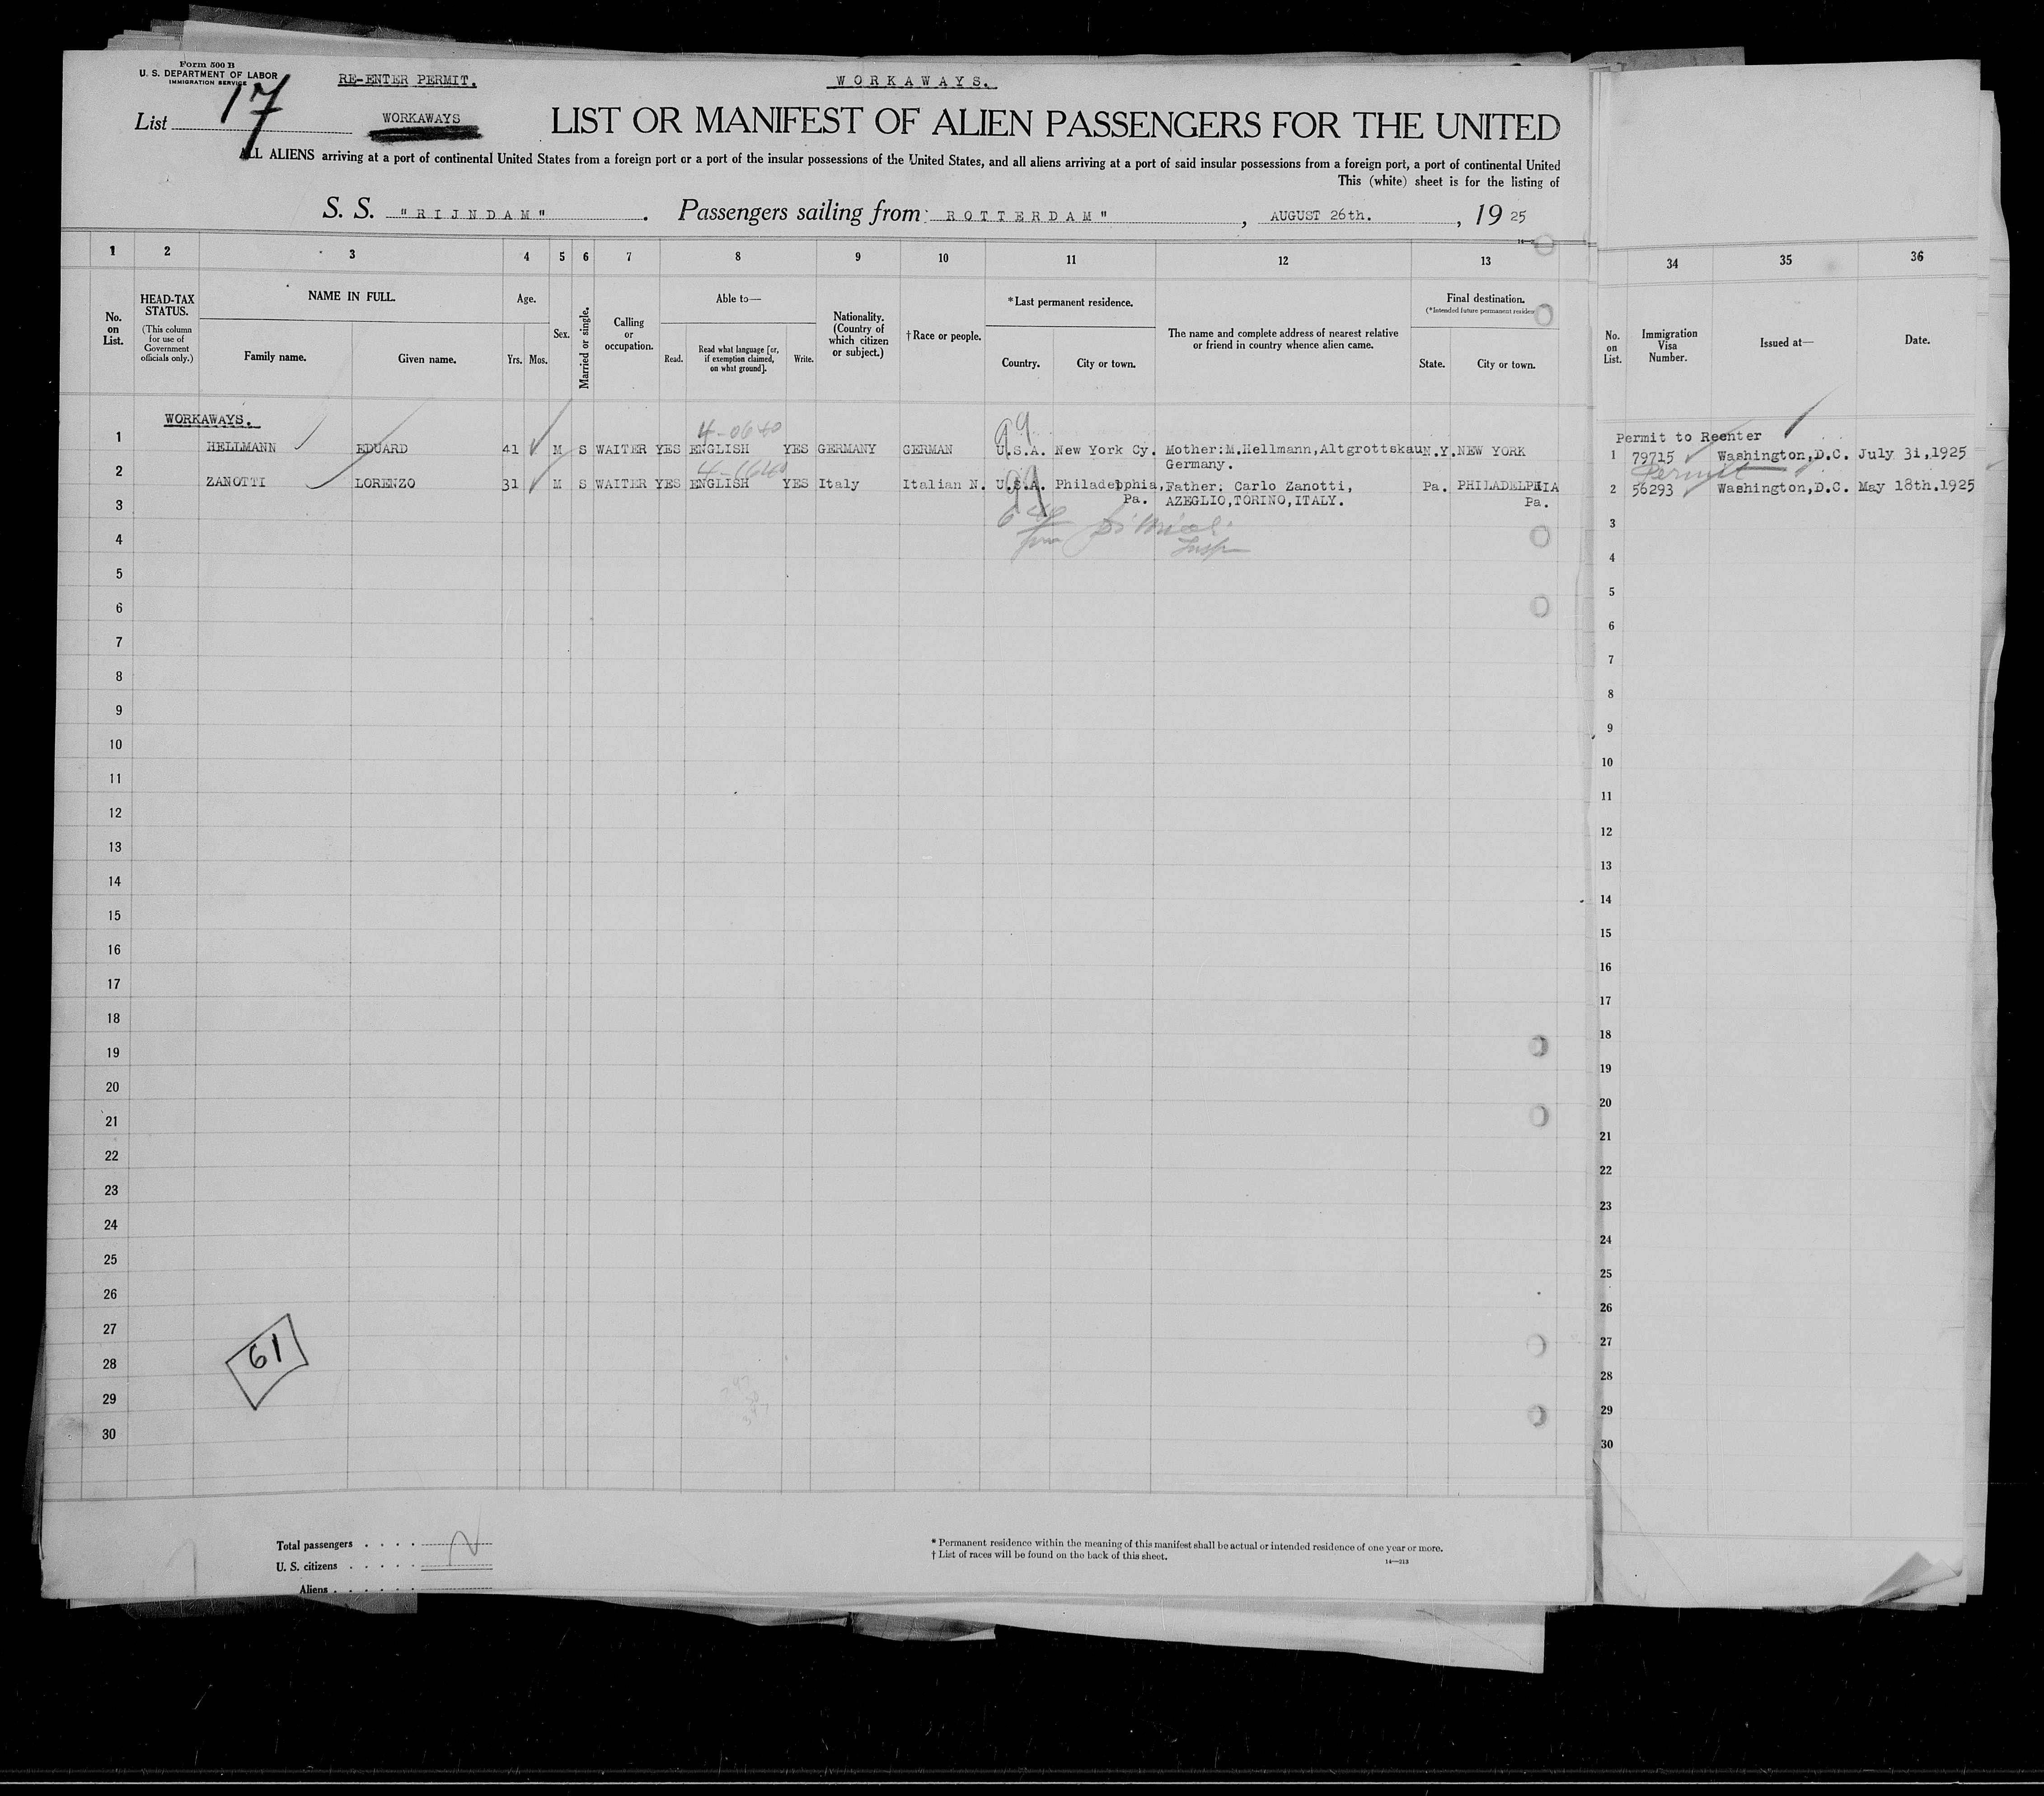 Form 500 B
U. S. DEPARTMENT OF LABOR
IMMIGRATION SERVICE
RE-ENTER PERMIT.
WORKAWAYS.
List 17
WORKAWAYS
LIST OR MANIFEST OF ALIEN PASSENGERS FOR THE UNITED
ALL ALIENS arriving at a port of continental United States from a foreign port or a port of the insular possessions of the United States, and all aliens arriving at a port of said insular possessions from a foreign port, a port of continental United
This (white) sheet is for the listing of
S. S. "RIJNDAM". Passengers sailing from ROTTERDAM", AUGUST 26th., 1925
1 2 3 4 5 6 7 8 9 10 11 12 13 34 35 36
No. on List.
HEAD-TAX STATUS.
(This column for use of Government officials only.)
NAME IN FULL.
Family name.
Given name.
Age.
Yrs. Mos.
Sex.
Married or single.
Calling or occupation.
Able to—
Read.
Read what language [or, if exemption claimed, on what ground].
Write.
Nationality. (Country of which citizen or subject.)
† Race or people.
*Last permanent residence.
Country.
City or town.
The name and complete address of nearest relative or friend in country whence alien came.
Final destination.
(*Intended future permanent residen
State.
City or town.
No. on List.
Immigration Visa Number.
Issued at—
Date.
WORKAWAYS.
4-0640
99
Permit to Reenter
1 HELLMANN EDUARD 41 M S WAITER YES ENGLISH YES GERMANY GERMAN U.S.A. New York Cy. Mother:M.Hellmann,Altgrottskau N.Y. NEW YORK 1 79715 Washington,D.C. July 31,1925
Germany.
4-1640
99
Permit
2 ZANOTTI LORENZO 31 M S WAITER YES ENGLISH YES Italy Italian N. U.S.A. Philadelphia, Father: Carlo Zanotti, Pa. PHILADELPHIA 2 56293 Washington,D.C. May 18th.1925
Pa. AZEGLIO,TORINO,ITALY. Pa.
Insp
3 3
4 4
5 5
6 6
7 7
8 8
9 9
10 10
11 11
12 12
13 13
14 14
15 15
16 16
17 17
18 18
19 19
20 20
21 21
22 22
23 23
24 24
25 25
26 26
27 27
28 28
29 29
30 30
61
Total passengers
U. S. citizens
Aliens
* Permanent residence within the meaning of this manifest shall be actual or intended residence of one year or more.
† List of races will be found on the back of this sheet.
14—213